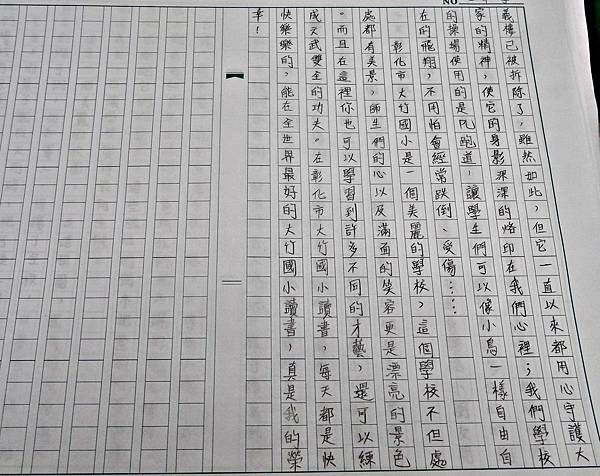 NO
義樓已被拆除了，雖然如此，但它一直以來都用心守護大
家的精神，使它的身影深深的烙印在我們心裡；我們學校
的操場使用的是PU跑道，讓學生們可以像小鳥一樣自由自
在的飛翔，不用怕會經常跌倒、受傷……
彰化市大竹國小是一個美麗的學校，這個學校不但處
處都有美景，師生們的心以及滿面的笑容更是漂亮的景色
。而且在這裡你也可以學習到許多不同的才藝，還可以練
成文武雙全的功夫。在彰化市大竹國小讀書，每天都是快
快樂樂的，能在全世界最好的大竹國小讀書，真是我的榮
幸！